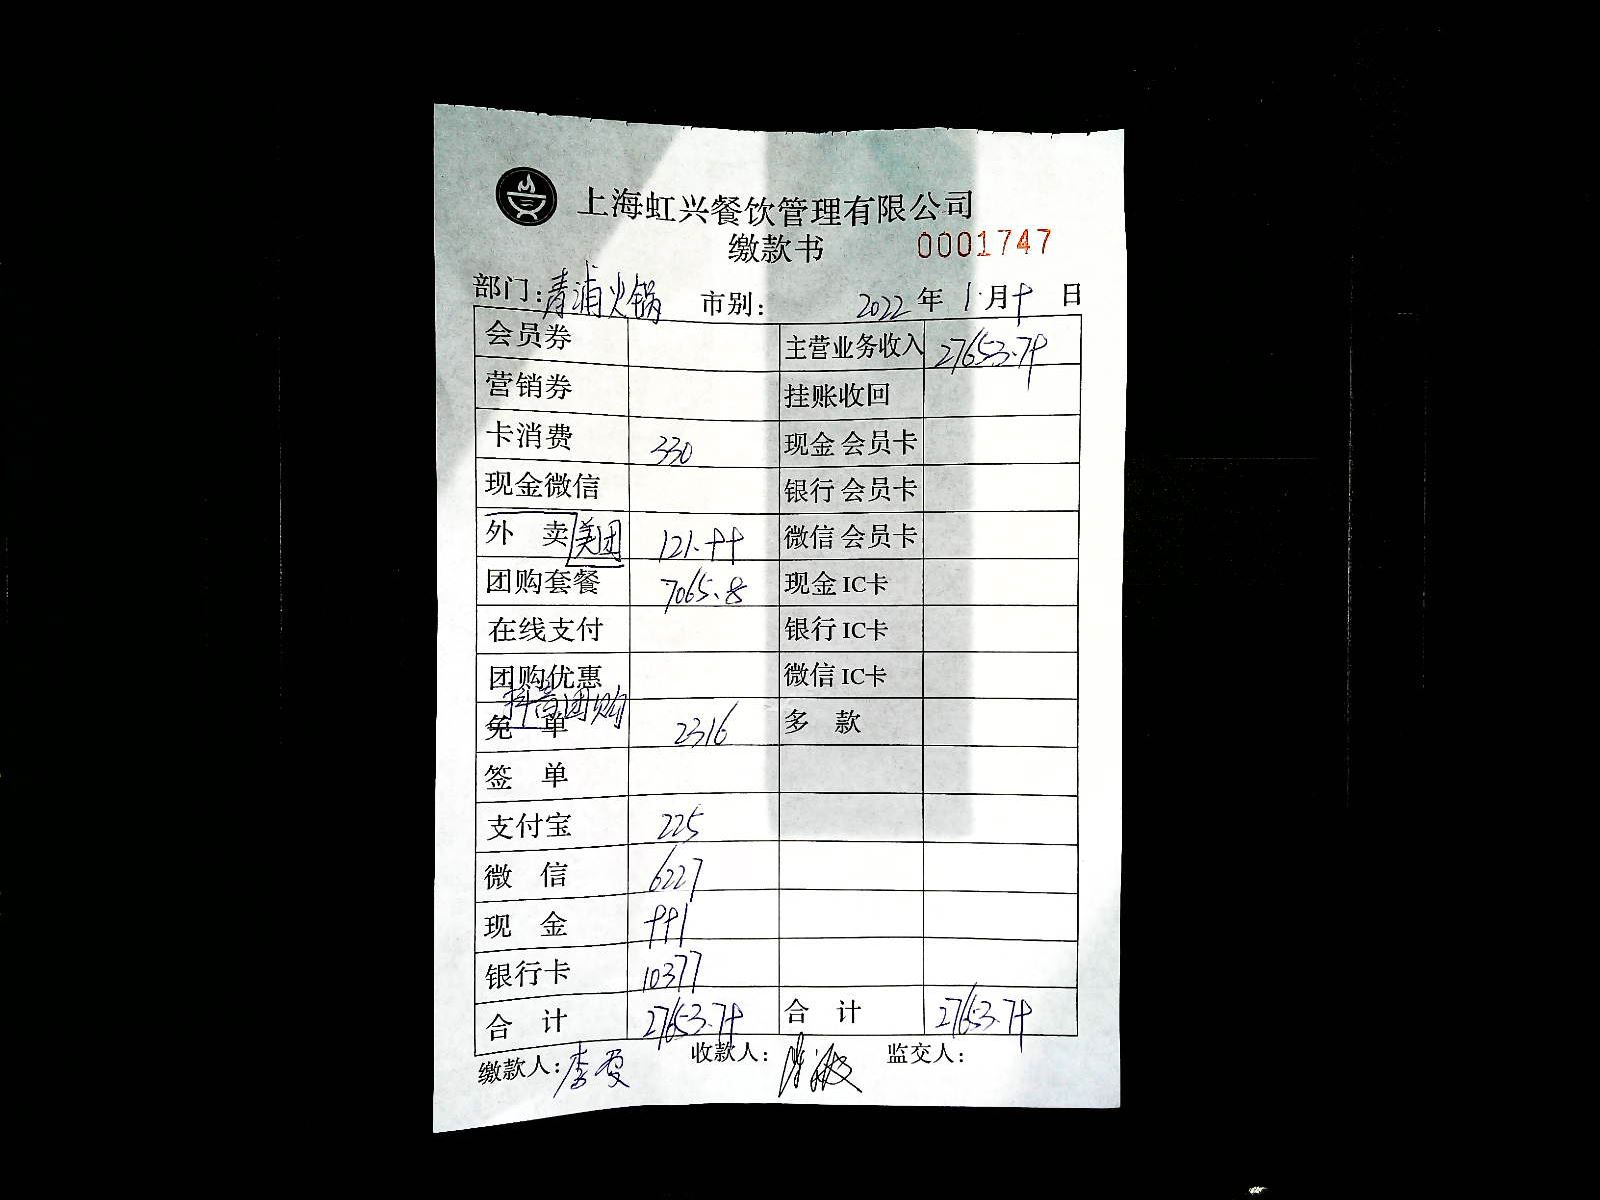 上海虹兴餐饮管理有限公司
缴款书 0001747
部门:青浦火锅 市别: 2022年1月 日
会员券 主营业务收入 27653.74
营销券 挂账收回
卡消费 330 现金会员卡
现金微信 银行会员卡
外卖 美团 121.94 微信会员卡
团购套餐 7065.8 现金IC卡
在线支付 银行IC卡
团购优惠 微信IC卡
抖音团购
免单 2316 多款
签单
支付宝 225
微信 6227
现金 991
银行卡 10377
合计 27653.74 合计 27653.74
缴款人:李 收款人: 监交人: